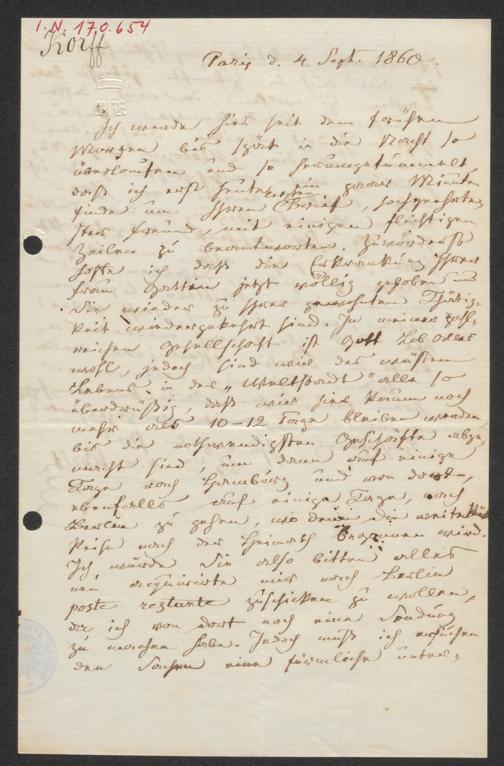 I. N. 170.654
Korff
Paris d. 4 Sept. 1860.
Ich werde hier seit dem frühen
Morgen bis spät in die Nacht so
überlaufen und so herumgetummelt
daß ich erst heute ein paar Minuten
finde um Ihren Brief, hochgeehrte-
ster Freund, mit einigen flüchtigen
Zeilen zu beantworten. Zuvörderst
hoffe ich daß die Erkrankung Ihrer
Frau Gattin jetzt völlig gehoben und
Sie wieder zu Ihrer gewohnten Thätig-
keit zurückgekehrt sind. In meiner zahl-
reichen Gesellschaft ist Gott Lob alles
wohl, jedoch sind wir des wüsten
Lebens in der "Weltstadt" alle so
überdrüßig, daß wir hier kaum noch
mehr als 10-12 Tage bleiben werden,
bis die nothwendigsten Geschäfte abge-
macht sind, um dann auf einige
Tage nach Hamburg und von dort,
ebenfalls auf einige Tage, nach
Berlin zu gehen, wo dann die weite
Reise nach der Heimath begonnen wird.
Ich würde Sie also bitten alles
neu acquirirte mir nach Berlin
poste restante zuschicken zu wollen,
da ich von dort noch eine Sendung
zu machen habe. Jedoch muß ich ersuchen
den Sachen eine förmliche unter-